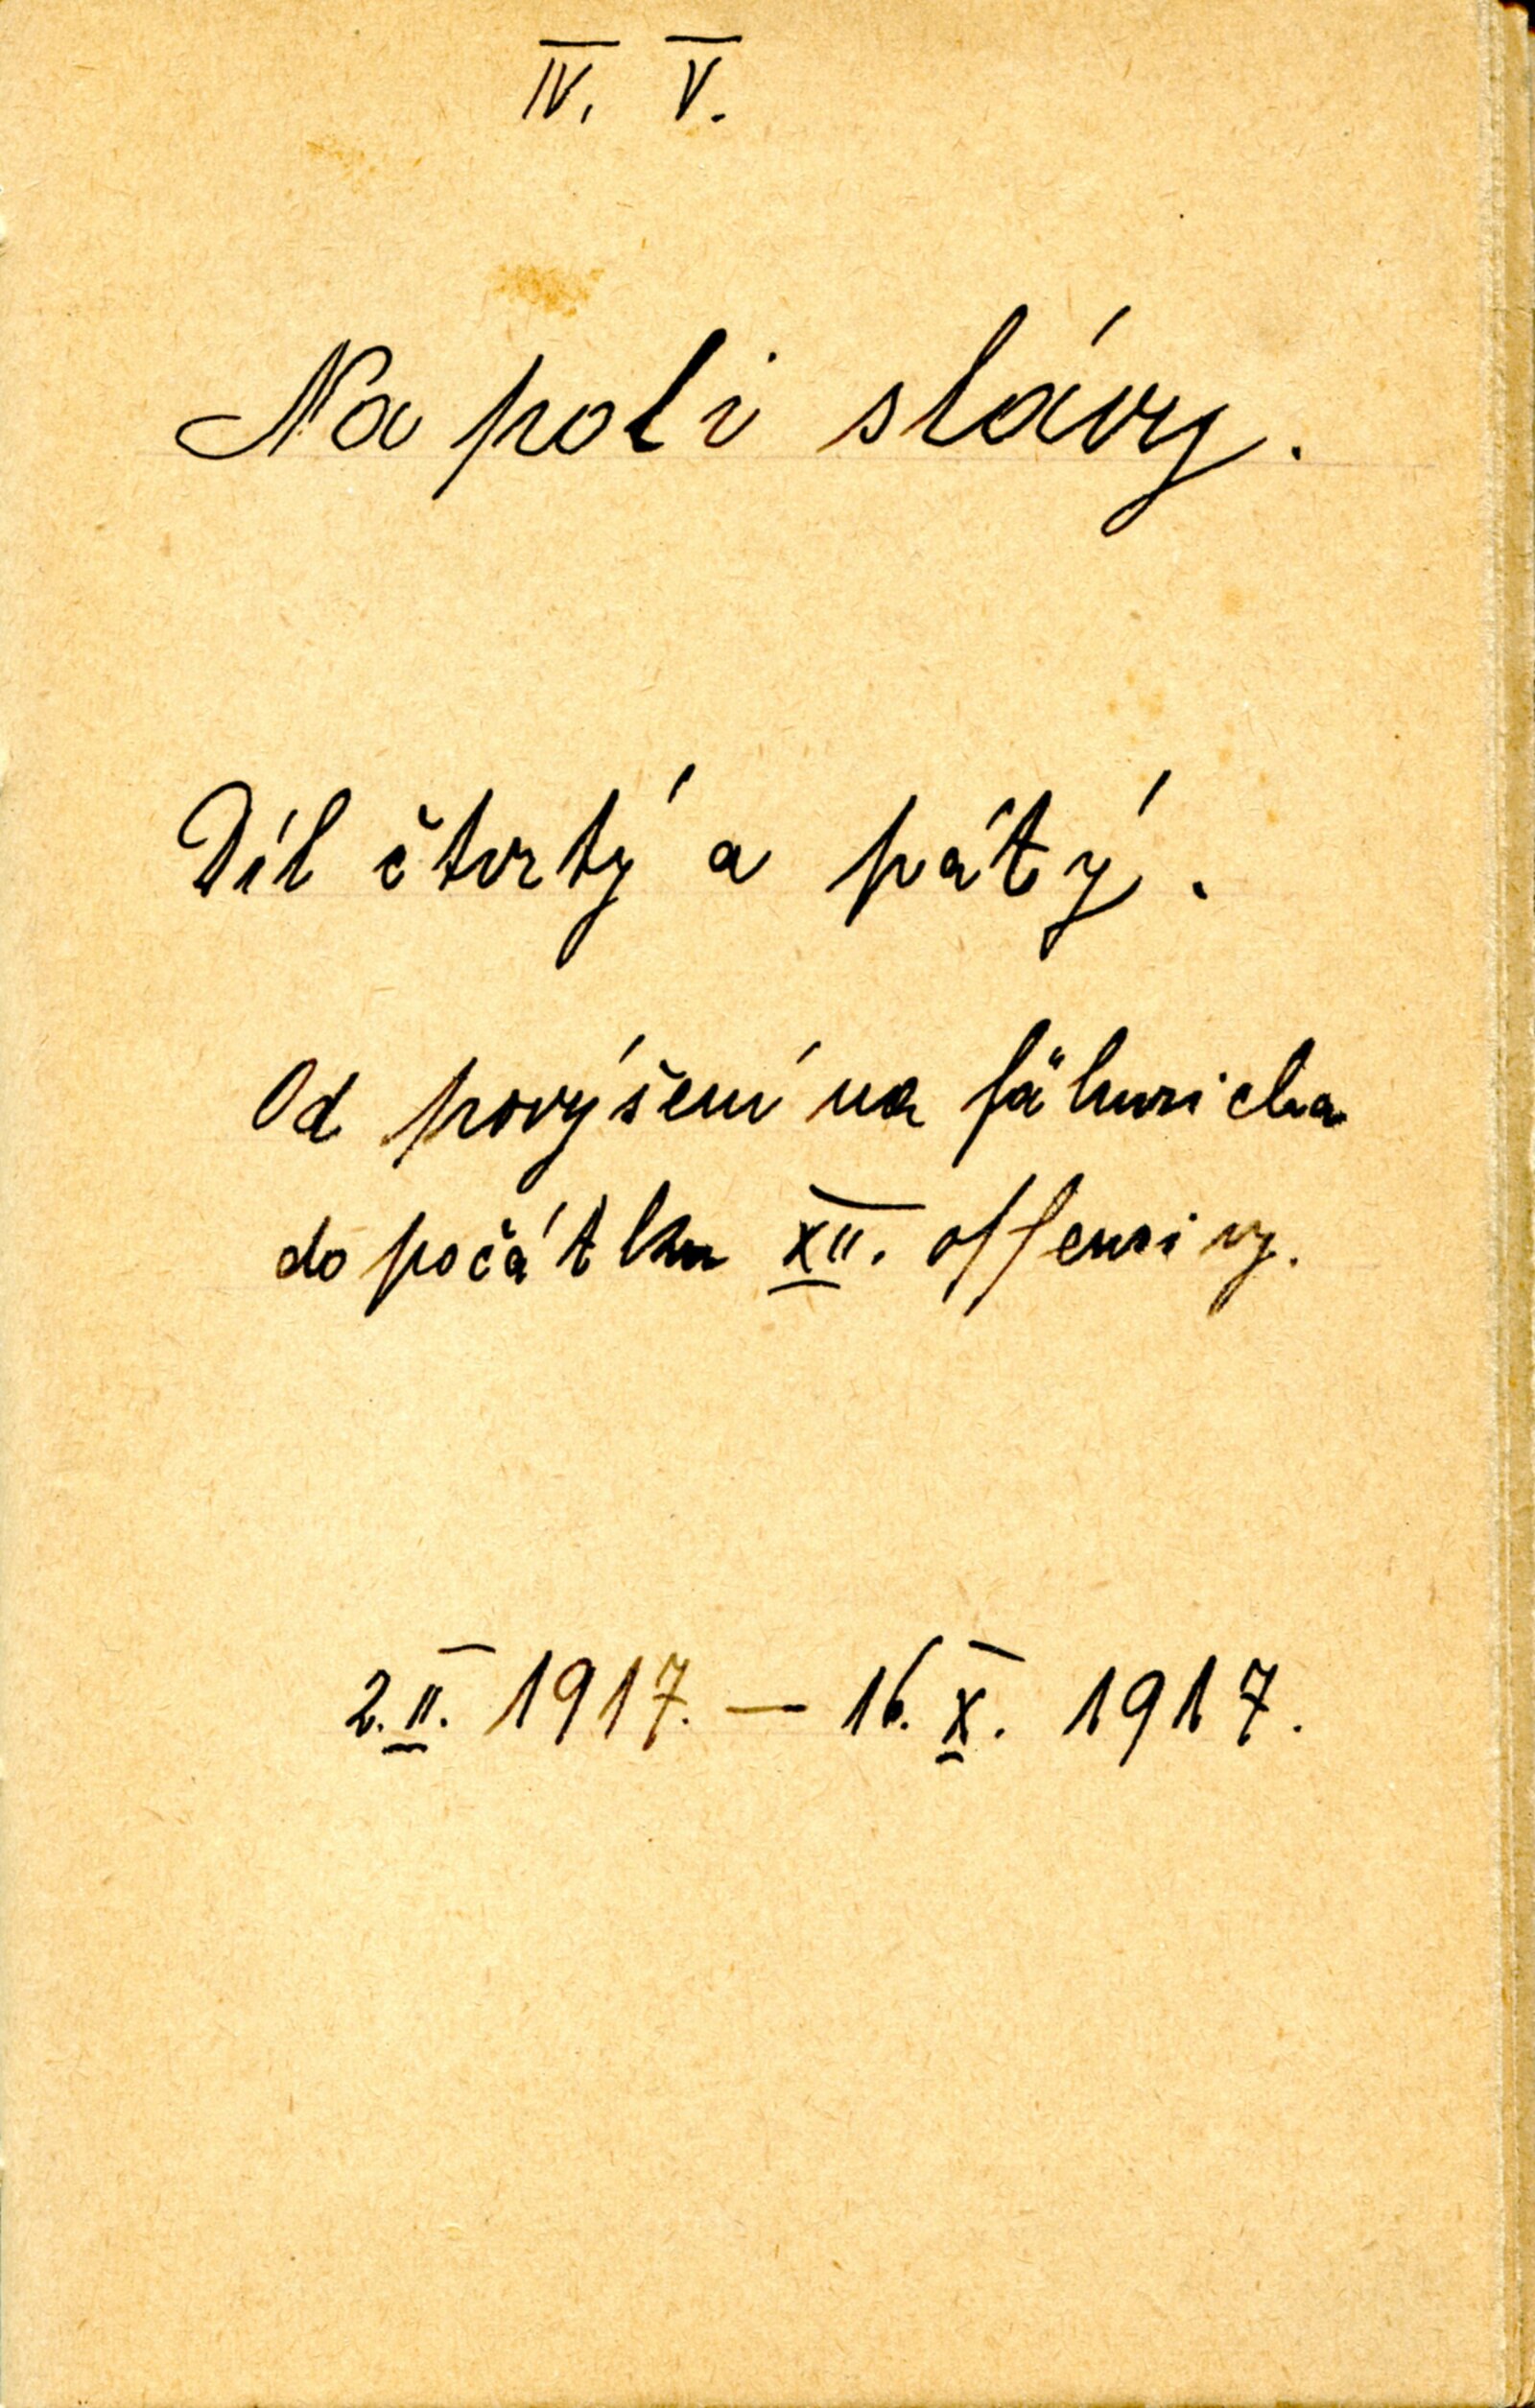 IV. V.
Na poli slávy.
Díl čtvrtý a pátý.
Od povýšení na fähnricha
do počátku XII. offensivy.
2. II. 1917. — 16. X. 1917.